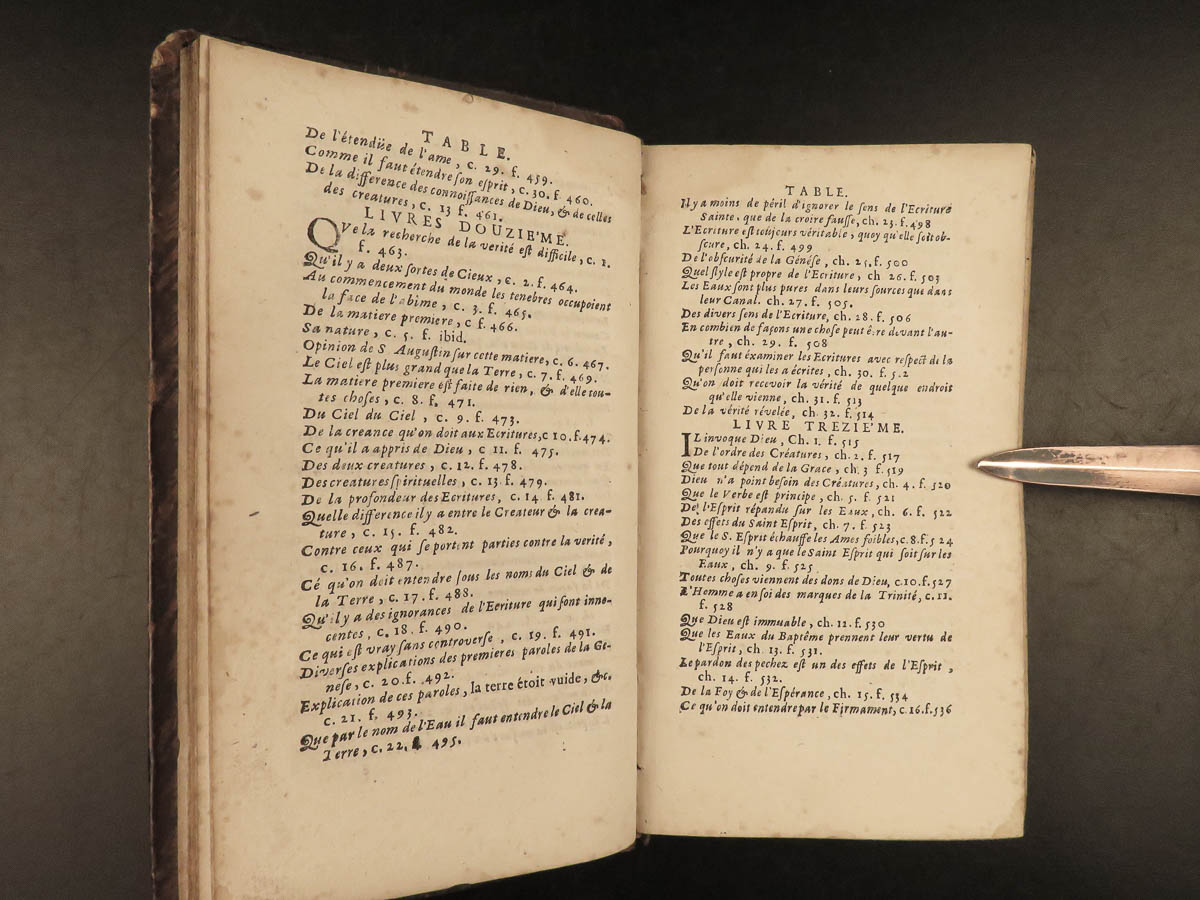 TABLE.
De l'étenduë de l'ame, c. 29. f. 459.
Comme il faut étendre son esprit, c. 30. f. 460.
De la difference des connoissances de Dieu, & de celles
des creatures, c. 13 f. 461.
LIVRES DOUZIE'ME.
Que la recherche de la verité est difficile, c. 1.
f. 463.
Qu'il y a deux sortes de Cieux, c. 2. f. 464.
Au commencement du monde les tenebres occupoient
la face de l'abîme, c. 3. f. 465.
De la matiere premiere, c f. 466.
Sa nature, c. 5. f. ibid.
Opinion de S Augustin sur cette matiere, c. 6. 467.
Le Ciel est plus grand que la Terre, c. 7. f. 469.
La matiere premiere est faite de rien, & d'elle tou-
tes choses, c. 8. f. 471.
Du Ciel du Ciel, c. 9. f. 473.
De la creance qu'on doit aux Ecritures, c 10. f. 474.
Ce qu'il a appris de Dieu, c 11. f. 475.
Des deux creatures, c. 12. f. 478.
Des creatures spirituelles, c. 13. f. 479.
De la profondeur des Ecritures, c. 14 f. 481.
Quelle difference il y a entre le Createur & la crea-
ture, c. 15. f. 482.
Contre ceux qui se portent parties contre la verité,
c. 16. f. 487.
Cé qu'on doit entendre sous les noms du Ciel & de
la Terre, c. 17. f. 488.
Qu'il y a des ignorances de l'Ecriture qui sont inno-
centes, c. 18. f. 490.
Ce qui est vray sans controverse, c. 19. f. 491.
Diverses explications des premieres paroles de la Ge-
nese, c. 20. f. 492.
Explication de ces paroles, la terre étoit vuide, &c.
c. 21. f. 493.
Que par le nom de l'Eau il faut entendre le Ciel & la
Terre, c. 22. 495.
TABLE.
Il y a moins de péril d'ignorer le sens de l'Ecriture
Sainte, que de la croire fausse, ch. 23. f. 498
L'Ecriture est toûjours véritable, quoy qu'elle soit ob-
scure, ch. 24. f. 499
De l'obscurité de la Génése, ch. 25. f. 500
Quel style est propre de l'Ecriture, ch 26. f. 503
Les Eaux sont plus pures dans leurs sources que dans
leur Canal. ch. 27. f. 505.
Des divers sens de l'Ecriture, ch. 28. f. 506
En combien de façons une chose peut être devant l'au-
tre, ch. 29. f. 508
Qu'il faut éxaminer les Ecritures avec respect de la
personne qui les a écrites, ch. 30. f. 512
Qu'on doit recevoir la vérité de quelque endroit
qu'elle vienne, ch. 31. f. 513
De la vérité révelée, ch. 32. f. 514
LIVRE TREZIE'ME.
IL invoque Dieu, Ch. 1. f. 515
De l'ordre des Créatures, ch. 2. f. 517
Que tout dépend de la Grace, ch. 3 f. 519
Dieu n'a point besoin des Créatures, ch. 4. f. 520
Que le Verbe est principe, ch. 5. f. 521
De l'Esprit répandu sur les Eaux, ch. 6. f. 522
Des effets du Saint Esprit, ch. 7. f. 523
Que le S. Esprit échauffe les Ames foibles, c. 8. f. 524
Pourquoy il n'y a que le Saint Esprit qui soit sur les
Eaux, ch. 9. f. 525
Toutes choses viennent des dons de Dieu, c. 10. f. 527
L'Homme a en soi des marques de la Trinité, c. 11.
f. 528
Que Dieu est immuable, ch. 12. f. 530
Que les Eaux du Baptême prennent leur vertu de
l'Esprit, ch. 13. f. 531.
Le pardon des pechez est un des effets de l'Esprit,
ch. 14. f. 532.
De la Foy & de l'Espérance, ch. 15. f. 534
Ce qu'on doit entendre par le Firmament, c. 16. f. 536